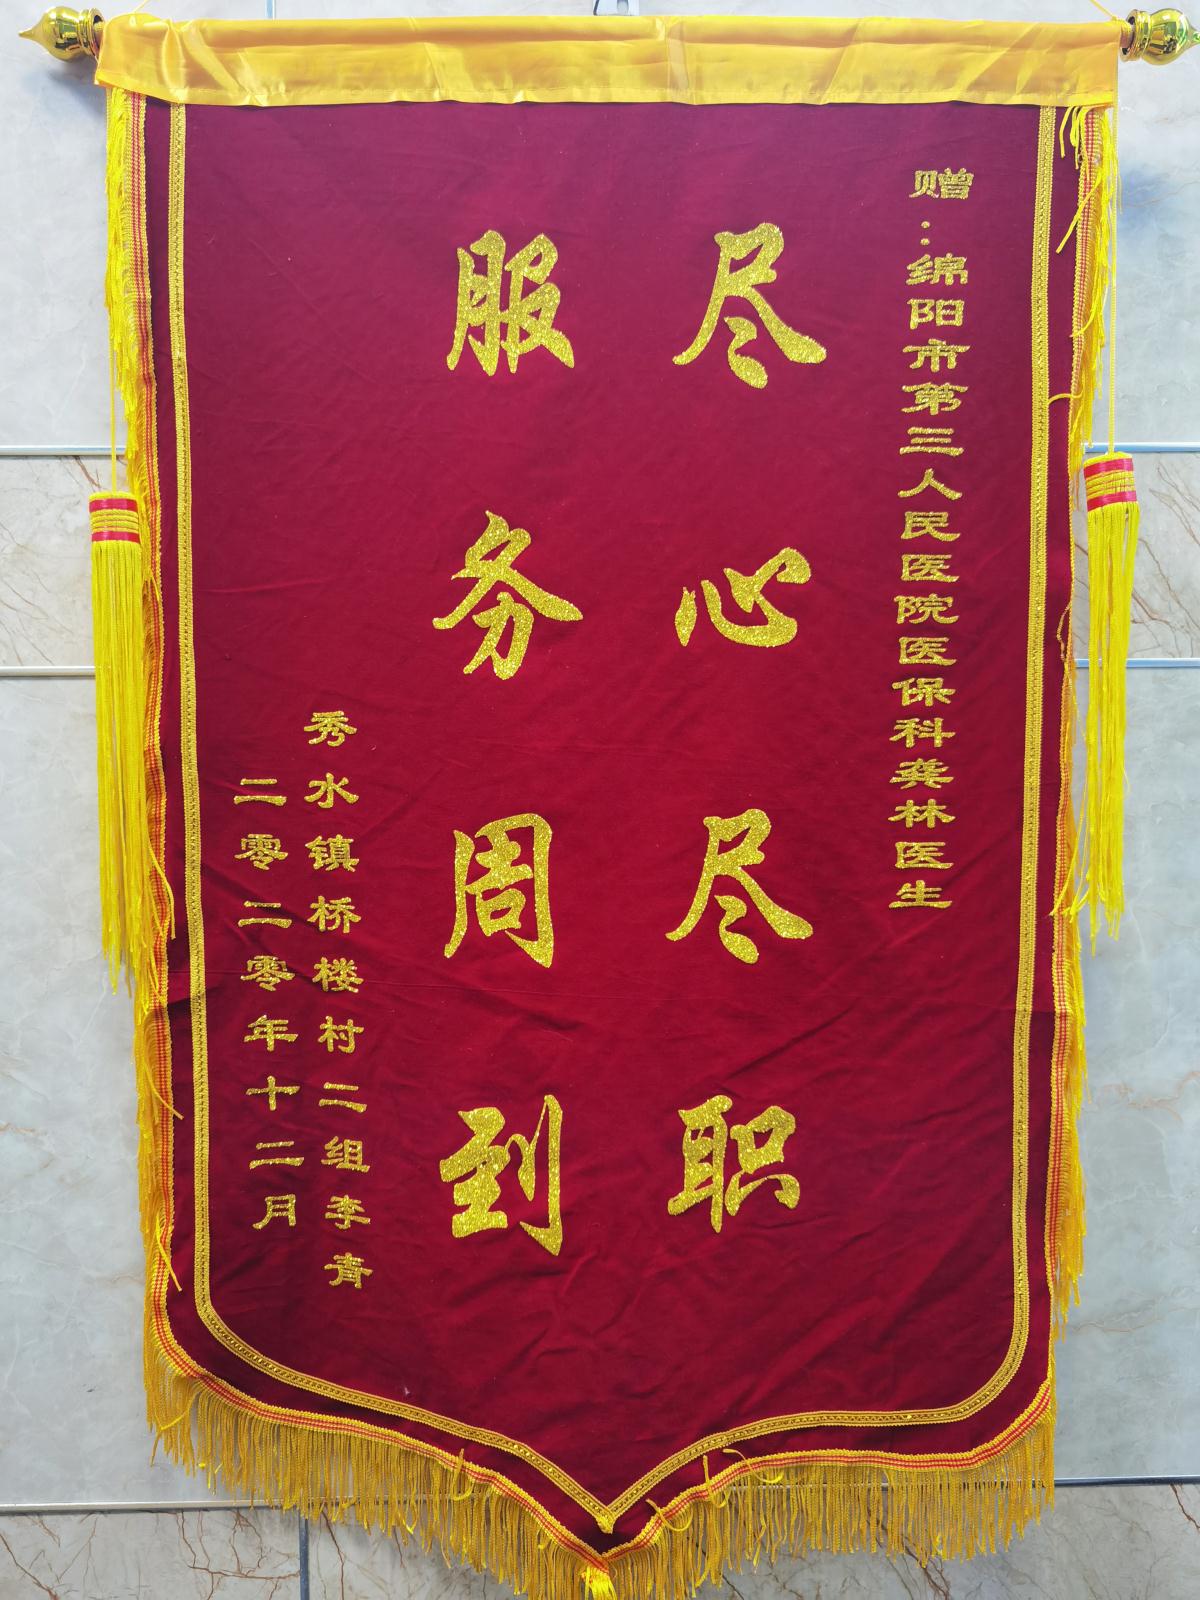 赠：绵阳市第三人民医院医保科龚林医生
尽心尽职
服务周到
秀水镇桥楼村二组李青
二零二零年十二月